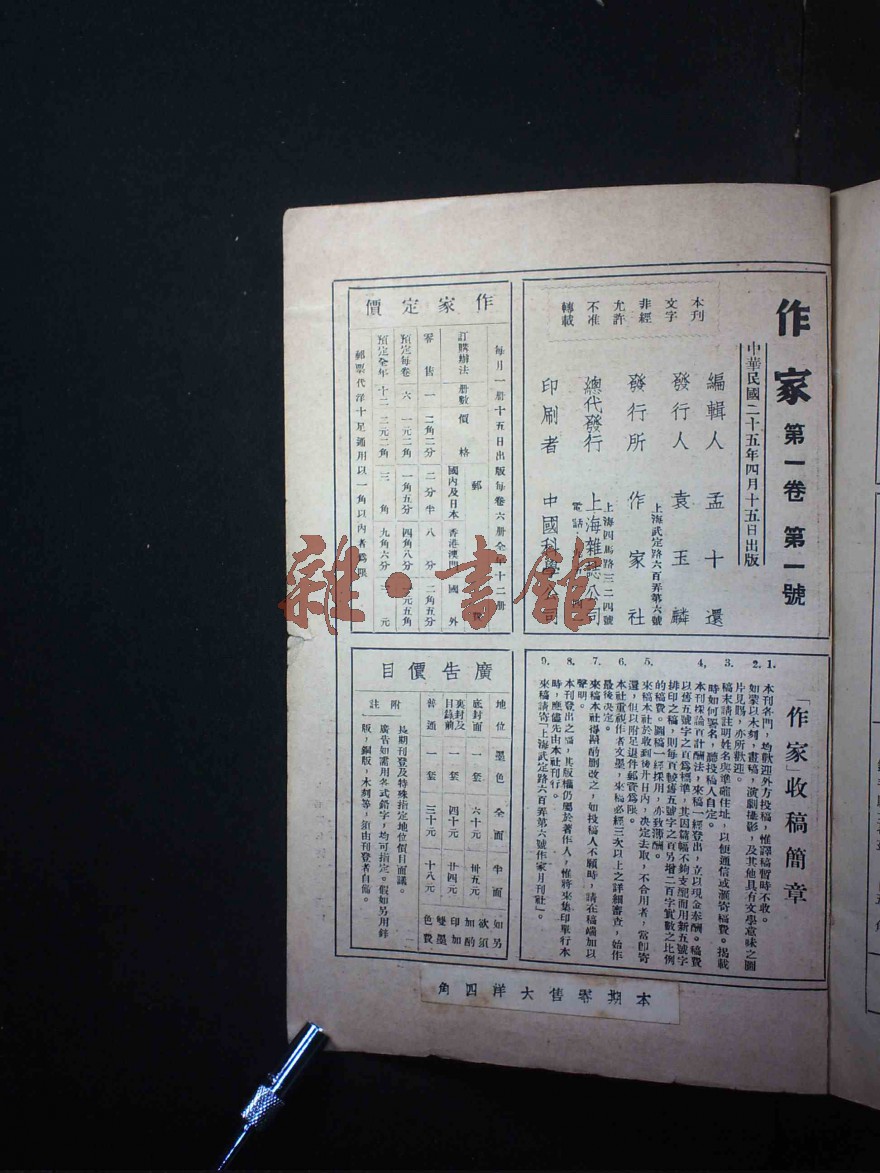 作家 第一卷 第一號
中華民國二十五年四月十五日出版
本刊
文字
非經
允許
不准
轉載
編輯人 孟十還
發行人 袁玉麟
發行所 作家社
上海武定路六百弄第六號
總代發行 上海雜誌公司
上海四馬路三二四號
電話
印刷者 中國科學公司
作家定價
每月一册十五日出版每卷六册全年十二册
訂購辦法 册數 價格 郵費
國內及日本 香港澳門 國外
零售 一 二角二分 二分半 八分 二角五分
預定每卷 六 一元二角 一角五分 四角八分 一元五角
預定全年 十二 二元二角 三角 九角六分 元
郵票代洋十足通用以一角以內者爲限
「作家」收稿簡章
1. 本刊各門，均歡迎外方投稿，惟譯稿暫時不收。
2. 如蒙以木刻，畫稿，演劇攝影，及其他具有文學意味之圖
片見賜，亦所歡迎。
3. 稿末請註明姓名與準確住址，以便通信或滙寄稿費。揭載
時如何署名，聽投稿人自定。
4. 本刊採論頁計酬法，來稿一經登出，立以現金奉酬。稿費
以舊五號字之頁爲標準，其因篇幅不夠支配而用新五號字
排印之稿，則每頁較舊五號字之頁另增二百字實數之比例
的稿費。圖稿一經採用，亦致薄酬。
5. 來稿本社於收到後廿日內，決定去取，不合用者，當卽寄
還，但以附足退件郵費爲限。
6. 本社重視作者文墨，來稿必經三次以上之詳細審查，始作
最後決定。
7. 來稿本社得斟酌刪改之，如投稿人不願時，請在稿端加以
聲明。
8. 本刊登出之稿，其版權仍屬於著作人，惟將來集印單行本
時，應儘先由本社刊行。
9. 來稿請寄「上海武定路六百弄第六號作家月刊社」。
廣告價目
地位 墨色 全面 半面
底封面 一套 六十元 卅五元
裏封及目錄前 一套 四十元 廿四元
普通 一套 三十元 十八元
如另欲須加酌印加雙墨色費
附註
長期刊登及特殊指定地位價目面議。
廣告如需用各式鉛字，均可指定。假如另用鋅
版，銅版，木刻等，須由刊登者自備。
本期零售大洋四角
雜·書館